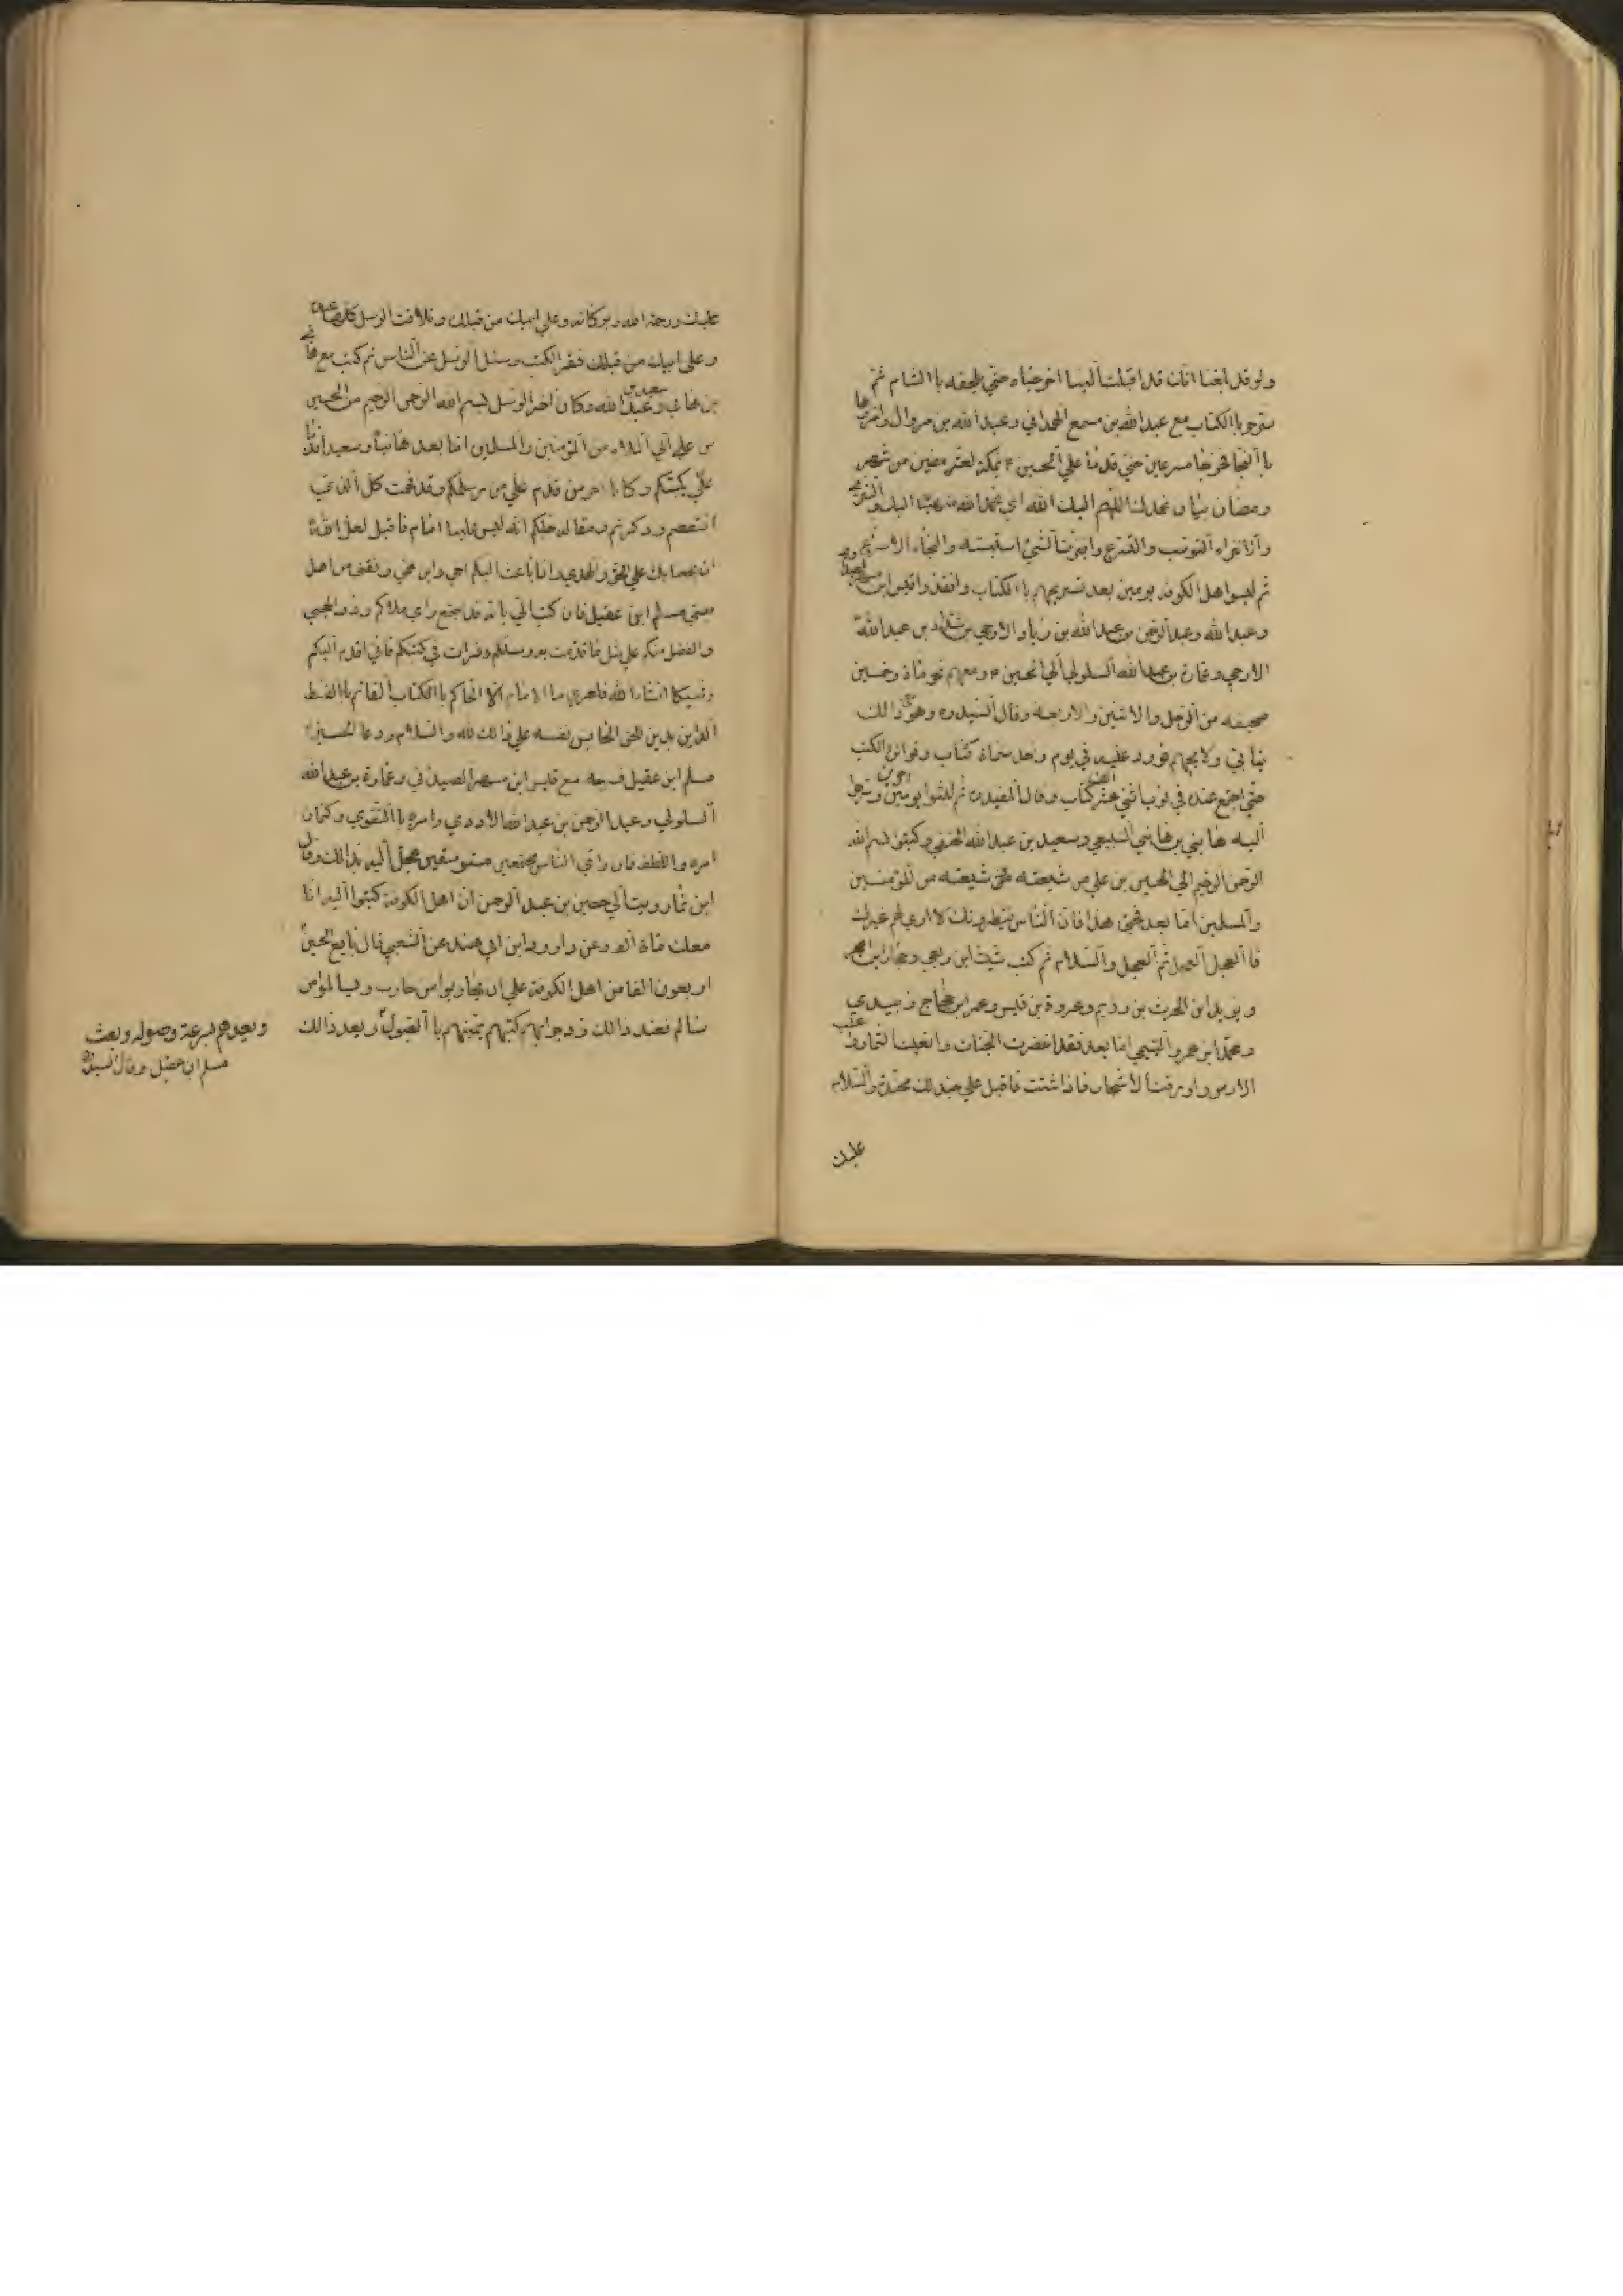 ولو قد بلغنا انك قد اقبلت الينا اخرجناه حتي يلحقه باالشام ثم
سرحوا باالكتاب مع عبدالله بن مسمع الهمداني وعبدالله بن وال وامروهما
باالنجا فخرجا مسرعين حتي قدما علي الحسين ع بمكة لعشر مضين من شهر
رمضان
ثم لبسوا اهل الكوفه يومين بعد تسريحهم باالكتاب وانفذوا قيس ابن مسهر
وعبدالله وعبدالرحمن بن عبدالله بن زياد الارحبي بن شداد بن عبدالله
الارحبي وعمارة بن عبدالله السلولي الي الحسين ع ومعهم نحو مأة وخمسين
صحيفه من الرجل والاثنين والاربعه وقال السيد ره وهو ذالك
يتأبي ولا يجيبهم فورد عليه في يوم واحد ستمأة كتاب وتواتر الكتب
حتي اجتمع عنده في نوب اثني عشر الف كتاب وقال المفيد ره ثم لبثوا يومين اخرين وسرحوا
اليه هاني بن هاني السبيعي وسعيد بن عبدالله الحنفي وكتبوا بسم الله
الرحمن الرحيم الي الحسين بن علي من شيعته من المؤمنين
والمسلمين اما بعد فحي هلا فان الناس ينتظرونك لا اري لهم غيرك
فاالعجل العجل ثم العجل والسلام ثم كتب شبث ابن ربعي وحجار ابن ابجر
ويزيد ابن الحرث بن رويم وعروة بن قيس وعمر ابن حجاج زبيدي
ومحمد ابن عمرو التيمي اما بعد فقد اخضرت الجنات واينعت الثمار واعشبت
الارض واورقت الاشجار فاذا شئت فاقبل علي جند لك مجندة والسلام
عليك
عليك ورحمة الله وبركاته وعلي ابيك من قبلك وتلاقت الرسل كلها عنده
وعلي ابيك من قبلك فقرا الكتب وسئل الرسل عن الناس ثم كتب مع هاني
بن هاني وسعيد بن عبدالله وكان اخر الرسل بسم الله الرحمن الرحيم من الحسين
بن علي الي الملاء من المؤمنين والمسلمين اما بعد هانيا وسعيدا قدما
علي بكتبكم وكانا اخر من قدم علي من رسلكم وقد فهمت كل الذي
اقتصصتم وذكرتم ومقالة جلكم انه ليس علينا امام فاقبل لعل الله
ان يجمعنا بك علي الحق والهدي وانا باعث اليكم اخي وابن عمي وثقتي من اهل
بيتي مسلم ابن عقيل فان كتب الي بانه قد اجتمع راي ملاءكم وذوالحجي
والفضل منكم علي مثل ما قدمت به رسلكم وقرات في كتبكم فاني اقدم اليكم
وشيكا انشاءالله فلعمري ما الامام الا الحاكم باالكتاب القائم باالقسط
الداين بدين الحق الحابس نفسه علي ذالك لله والسلام ودعا الحسين ع
مسلم ابن عقيل فسرحه مع قيس ابن مسهر الصيداني وعمارة بن عبدالله
السلولي وعبدالرحمن بن عبدالله الازدي وامره باالتقوي وكتمان
امره واللطف فان راي الناس مجتمعين مستوسقين عجل اليه بذالك وقال
ابن نما رويت الي حصين بن عبدالرحمن ان اهل الكوفة كتبوا اليه انا
معك مأة الف وعن داود ابن ابي هند عن الشعبي قال بايع الحسين
اربعون الفا من اهل الكوفة علي ان يحاربوا من حارب ويسالموا من
سالم فعند ذالك رد جوابهم كتبهم يمنيهم باالقبول وبعد ذالك
ويعدهم بسرعة وصوله وبعث
مسلم ابن عقيل وقال السيد